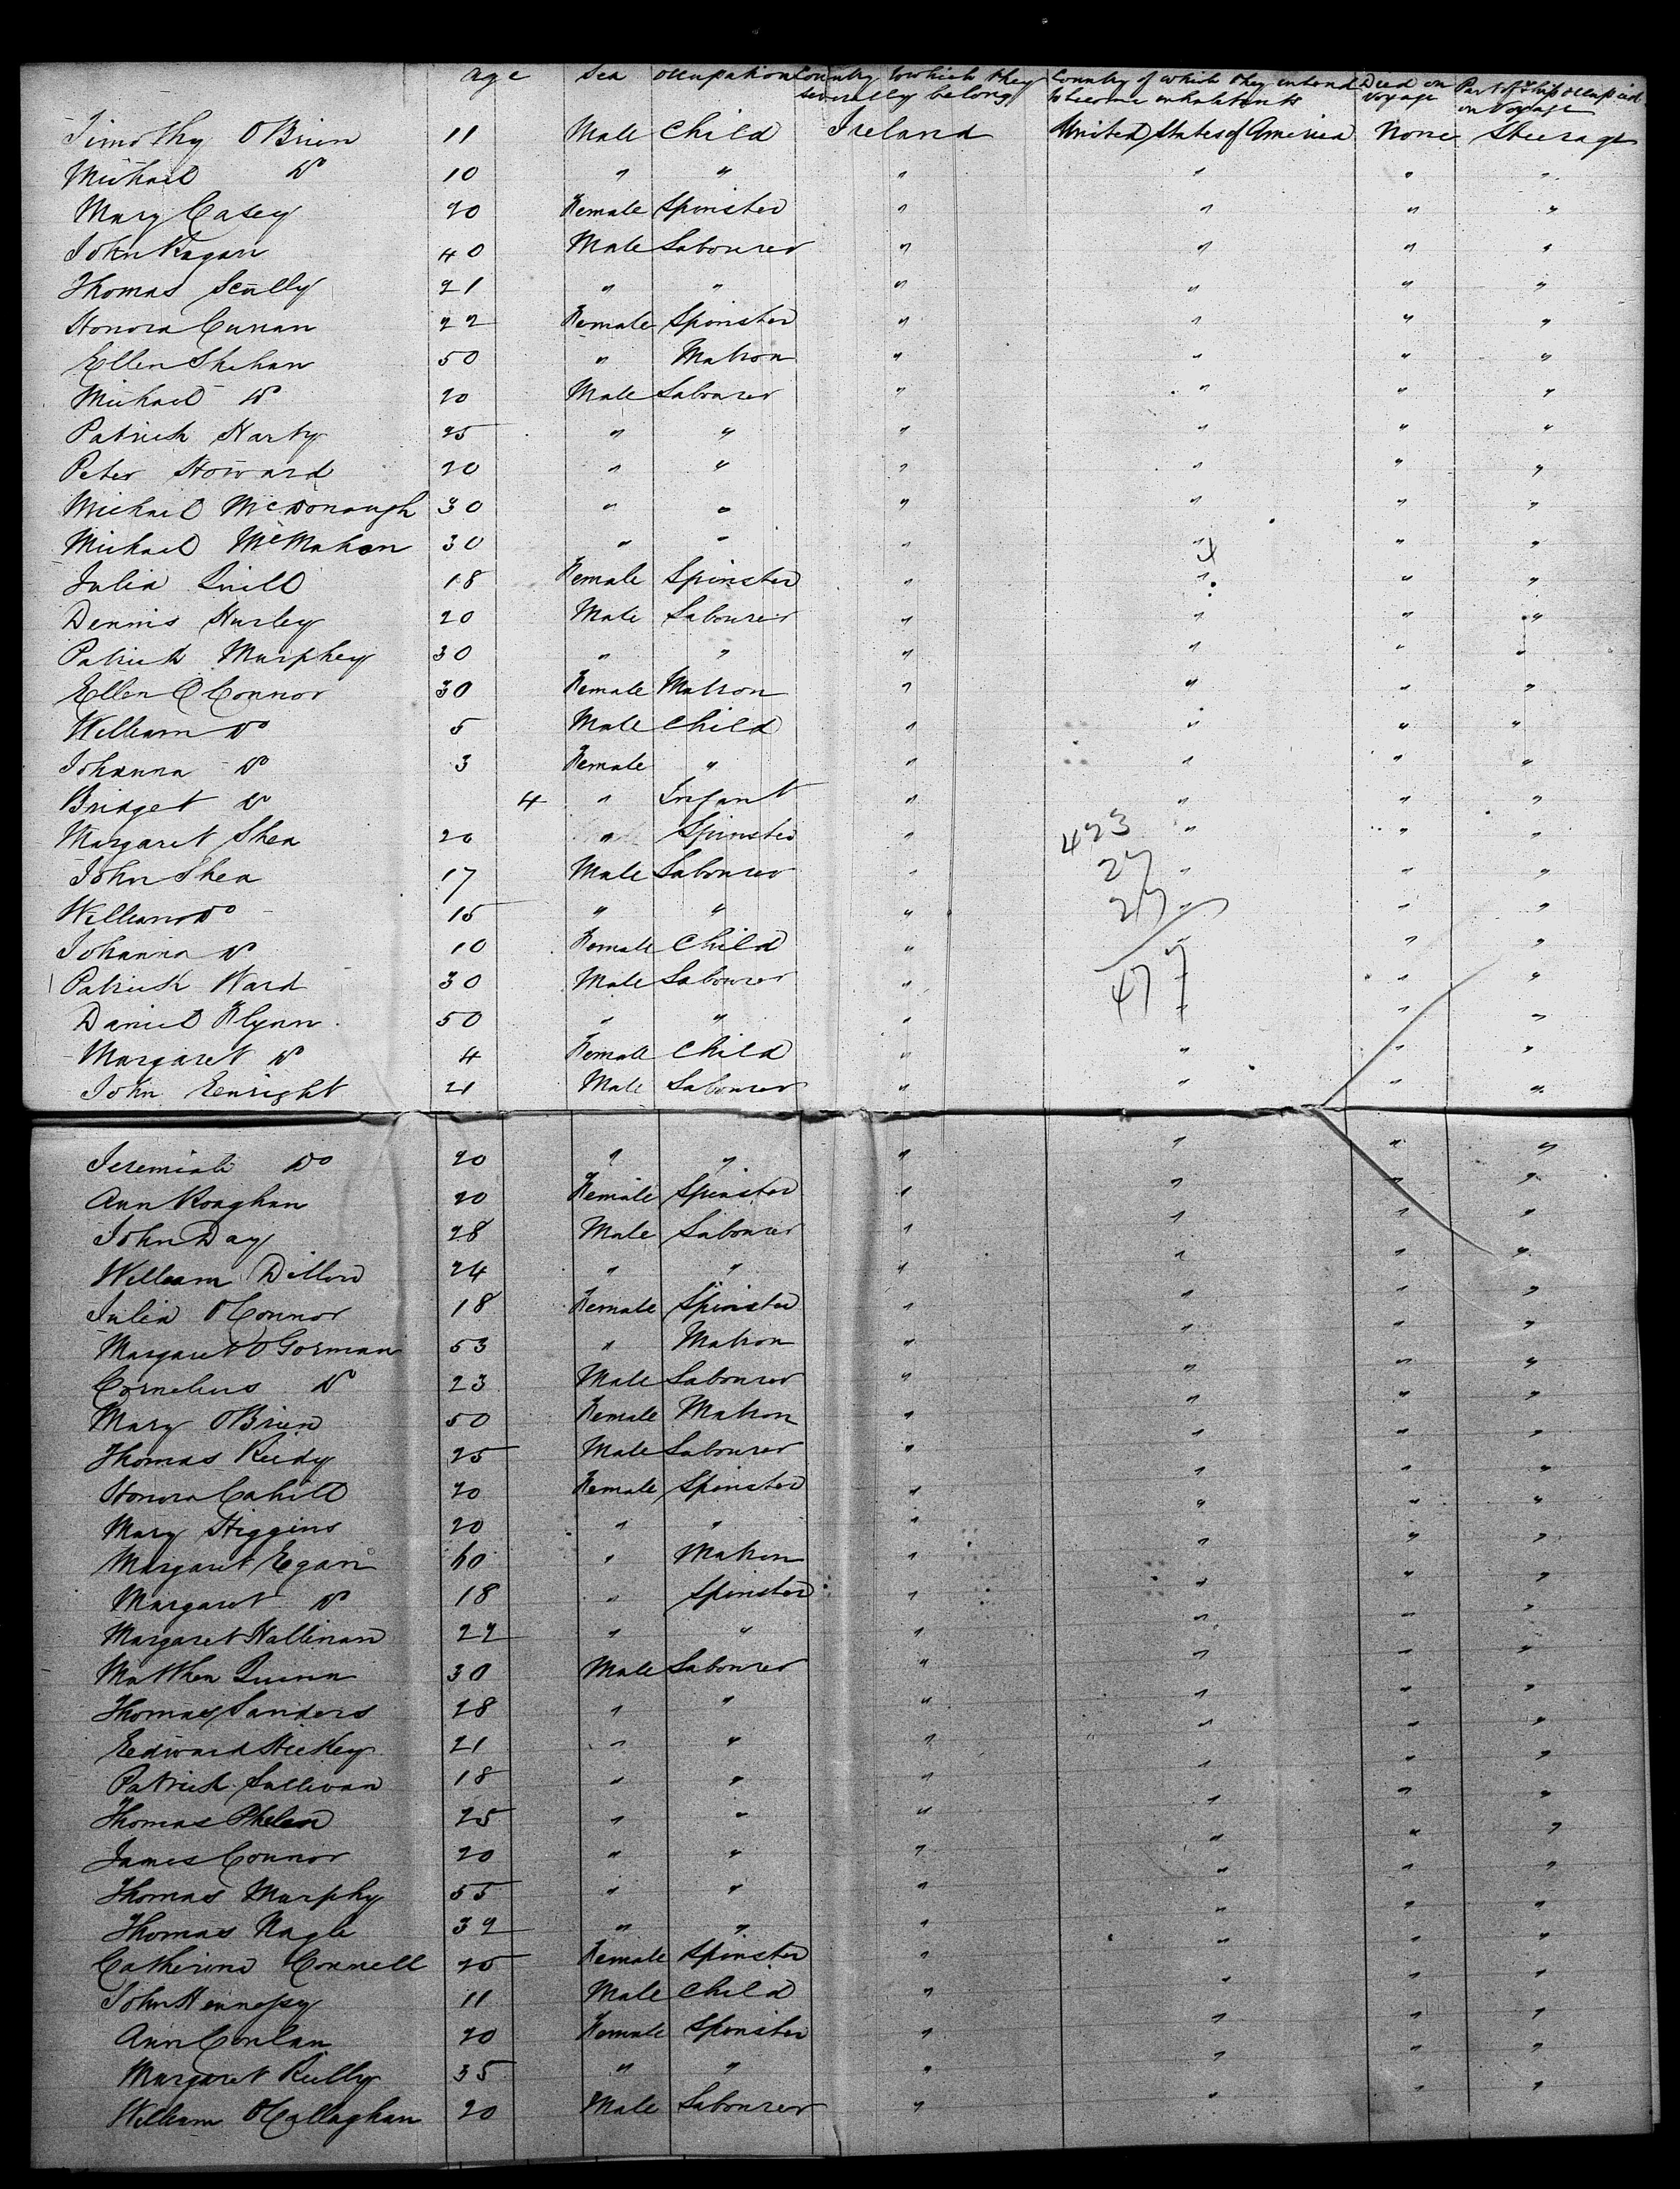 age Sex occupation Country to which they severally belong Country of which they intend to become inhabitants Died on Voyage Part of Ship occupied on Voyage
Timothy OBrien 11 Male Child Ireland United States of America None Steerage
Michael Do 10 " " " " " "
Mary Casey 20 Female Spinster " " " "
John Kagan 40 Male Labourer " " " "
Thomas Scully 21 " " " " " "
Honora Curran 22 Female Spinster " " " "
Ellen Shehan 50 " Matron " " " "
Michael Do 20 Male Labourer " " " "
Patrick Harty 25 " " " " " "
Peter Howard 20 " " " " " "
Michael McDonough 30 " " " " " "
Michael McMahon 30 " " " " " "
Julia Quill 18 Female Spinster " " " "
Dennis Hurley 20 Male Labourer " " " "
Patrick Murphey 30 " " " " " "
Ellen OConnor 30 Female Matron " " " "
William Do 5 Male Child " " " "
Johanna Do 3 Female " " " " "
Bridget Do 4 " Infant " " " "
Margaret Shea 20 " Spinster " 423 " " "
John Shea 17 Male Labourer " 27 " " "
William Do 15 " " " 27 " " "
Johanna Do 10 Female Child " " " "
Patrick Ward 30 Male Labourer " 477 " " "
Daniel Flynn 50 " " " " " "
Margaret Do 4 Female Child " " " "
John Enright 21 Male Labourer " " " "
Jeremiah Do 20 " " " " " "
Ann Roaghan 20 Female Spinster " " " "
John Day 28 Male Labourer " " " "
William Dillon 24 " " " " " "
Julia OConnor 18 Female Spinster " " " "
Margaret OGorman 53 " Matron " " " "
Cornelius Do 23 Male Labourer " " " "
Mary OBrien 50 Female Matron " " " "
Thomas Reidy 25 Male Labourer " " " "
Honora Cahill 20 Female Spinster " " " "
Mary Higgins 20 " " " " " "
Margaret Egan 60 " Matron " " " "
Margaret Do 18 " Spinster " " " "
Margaret Hallinan 22 " " " " " "
Mathew Quinn 30 Male Labourer " " " "
Thomas Sanders 28 " " " " " "
Eedward Hickey 21 " " " " " "
Patrick Sullivan 18 " " " " " "
Thomas Phelan 25 " " " " " "
James Connor 20 " " " " " "
Thomas Murphy 55 " " " " " "
Thomas Nagle 32 " " " " " "
Catherine Connell 25 Female Spinster " " " "
John Hennessy 11 Male Child " " " "
Ann Conlan 20 Female Spinster " " " "
Margaret Reilly 35 " " " " " "
William OCallaghan 20 Male Labourer " " " "